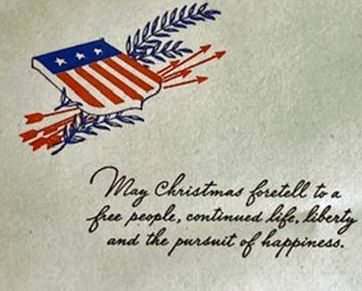 May Christmas foretell to a
free people, continued life, liberty
and the pursuit of happiness.